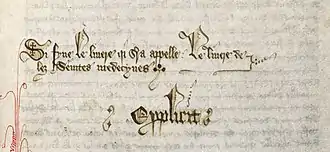 Si fyne le livere qi sa appelle le livere de
lez seintes medecynes
Explicit